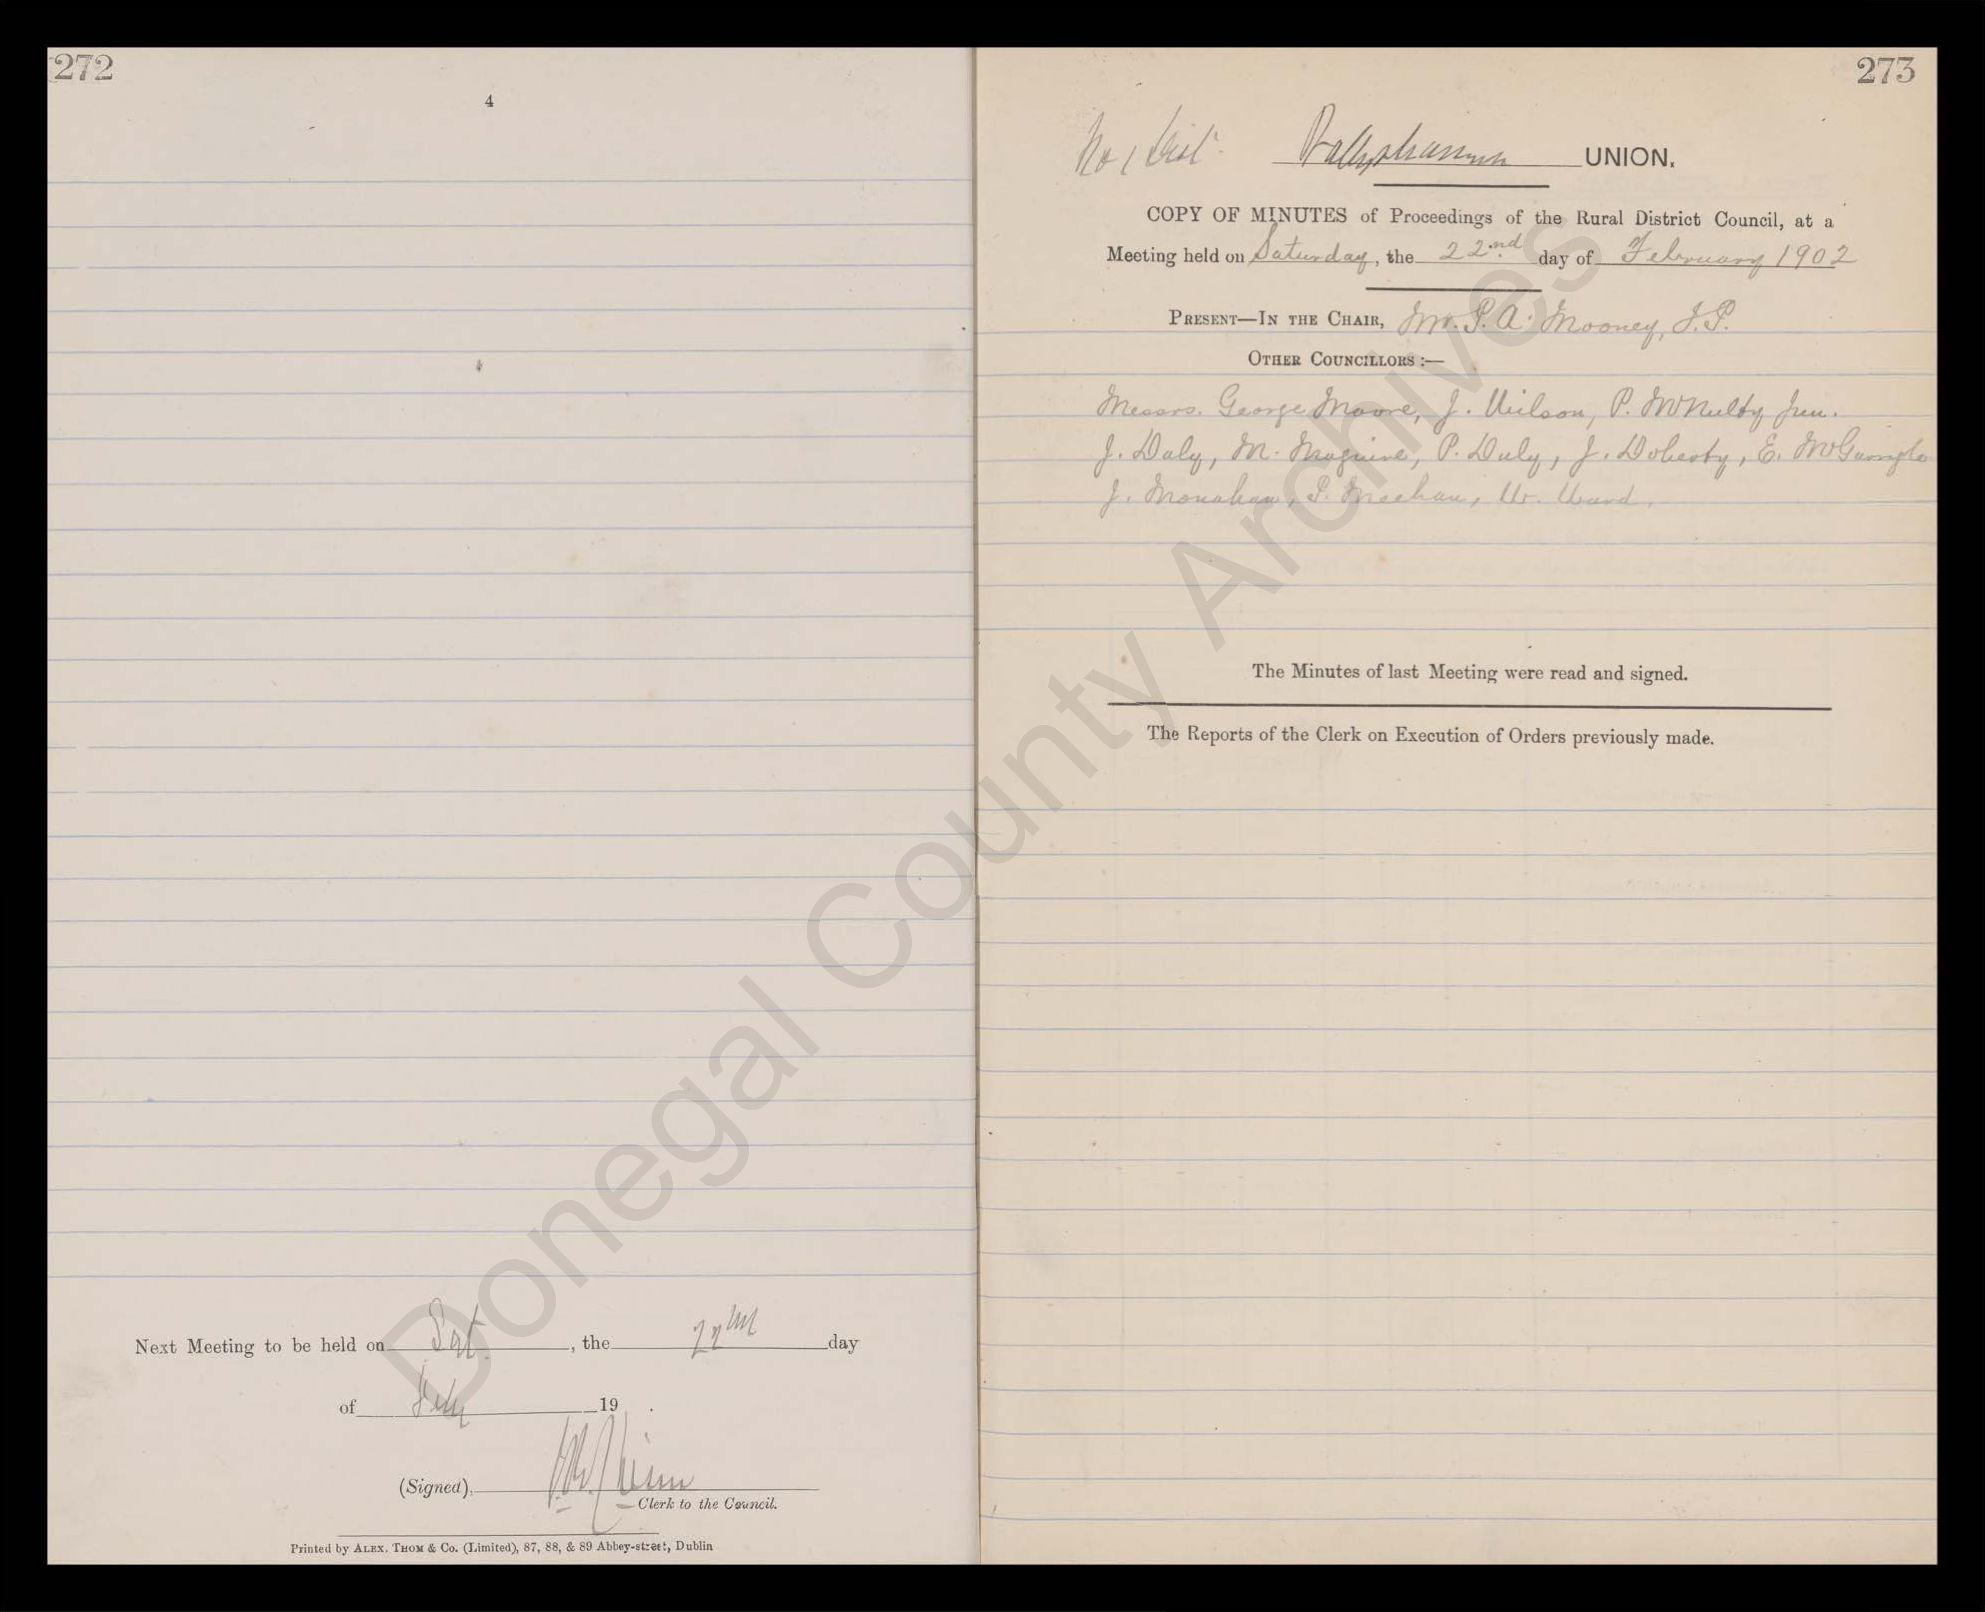 272
4
Next Meeting to be held on Sat. , the 22nd day
of Feby 19 .
(Signed),
Clerk to the Council.
Printed by ALEX. THOM & Co. (Limited), 87, 88, & 89 Abbey-street, Dublin
273
No 1 Dist. Ballyshannon UNION.
COPY OF MINUTES of Proceedings of the Rural District Council, at a
Meeting held on Saturday, the 22nd day of February 1902
PRESENT—IN THE CHAIR, Mr. P. A. Mooney, J.P.
OTHER COUNCILLORS :—
Messrs. George Moore, J. Wilson, P. McNulty Jun.
J. Daly, M. Maguire, P. Daly, J. Doherty, E. McGarrigle
J. Monahan, P. Meehan, W. Ward.
The Minutes of last Meeting were read and signed.
The Reports of the Clerk on Execution of Orders previously made.
Donegal County Archives